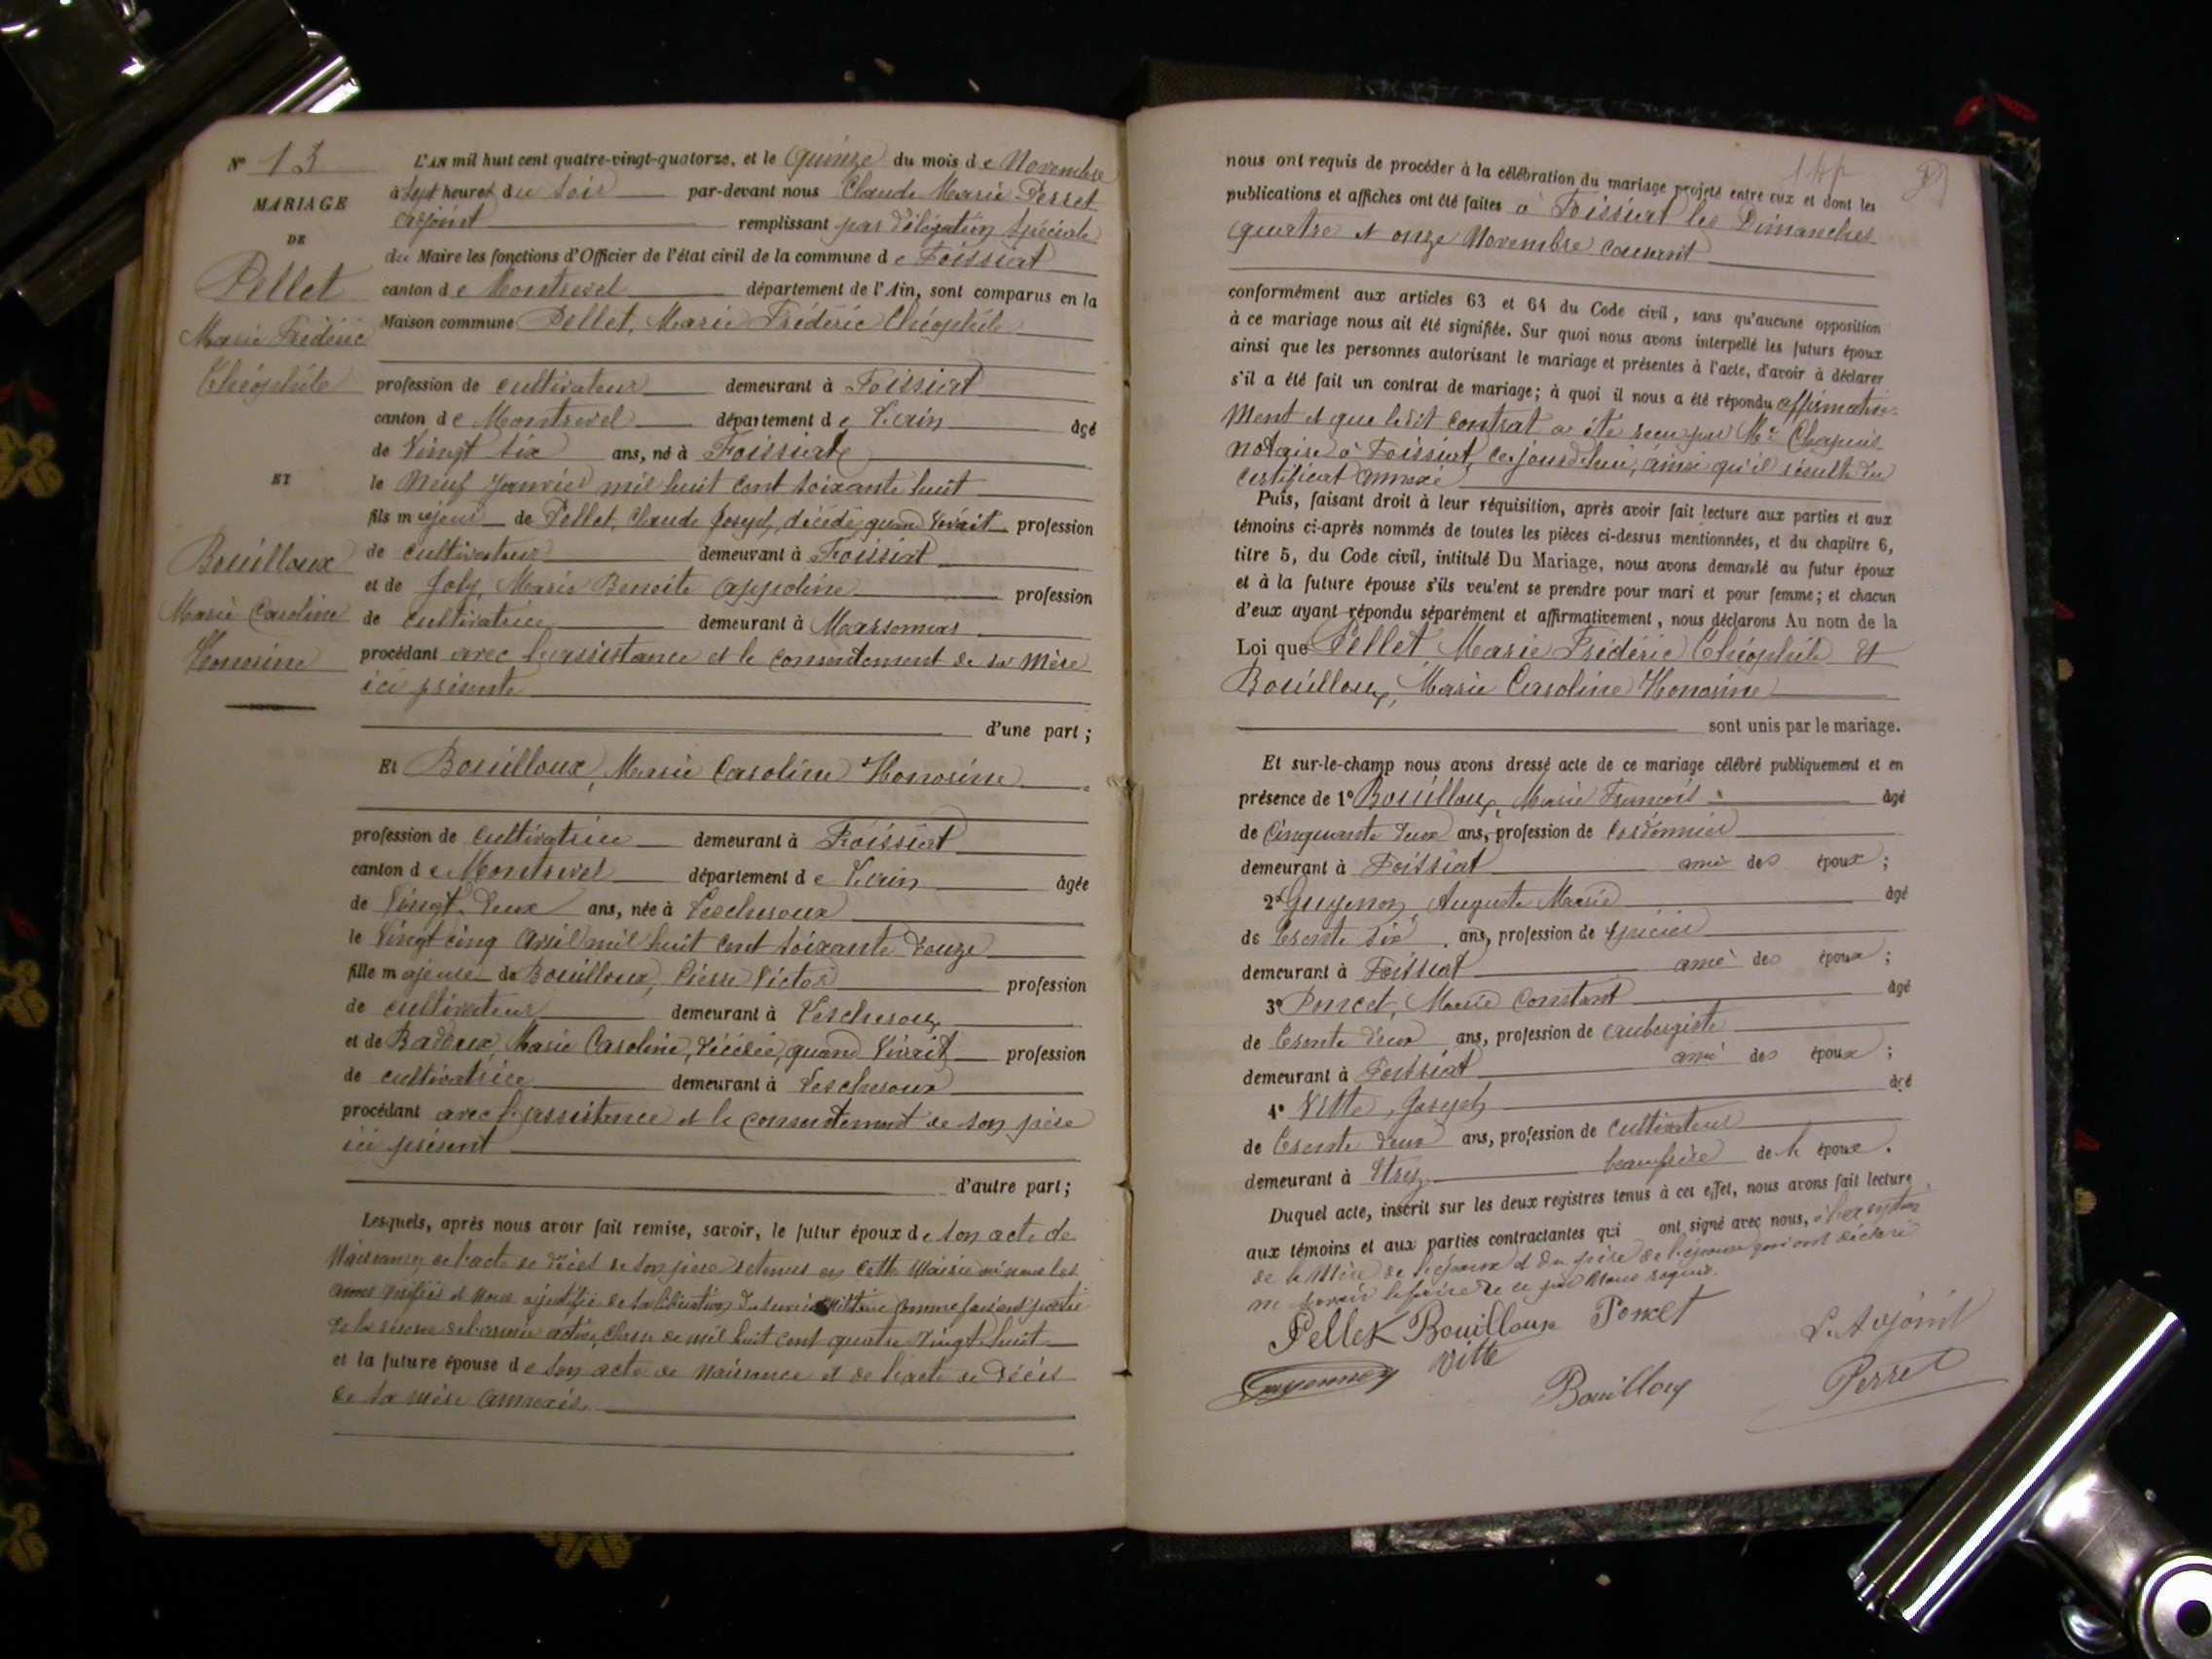 N° 13
MARIAGE
DE
Pellet
Marie Frédéric
Théophile
ET
Bouilloux
Marie Caroline
Honorine
L'AN mil huit cent quatre-vingt-quatorze, et le quinze du mois de Novembre
à sept heures du soir par-devant nous Claude Marie Perret
adjoint remplissant par délégation spéciale
du Maire les fonctions d'Officier de l'état civil de la commune de Foissiat
canton de Montrevel département de l'Ain, sont comparus en la
Maison commune Pellet, Marie Frédéric Théophile
profession de cultivateur demeurant à Foissiat
canton de Montrevel département de l'ain âgé
de vingt six ans, né à Foissiat
le neuf Janvier mil huit cent soixante huit
fils majeur de Pellet, Claude Joseph, décédé, quand vivait profession
de cultivateur demeurant à Foissiat
et de Joly, Marie Benoite appoline profession
de cultivatrice demeurant à Marsonnas
procédant avec l'assistance et le consentement de sa mère
ici présente
d'une part ;
Et Bouilloux, Marie Caroline Honorine
profession de cultivatrice demeurant à Foissiat
canton de Montrevel département de l'ain âgée
de vingt-deux ans, née à Lescheroux
le vingt cinq avril mil huit cent soixante douze
fille majeure de Bouilloux, Pierre Victor profession
de cultivateur demeurant à Lescheroux
et de Badoux, Marie Caroline, décédée, quand vivait profession
de cultivatrice demeurant à Lescheroux
procédant avec l'assistance et le consentement de son père
ici présent
d'autre part ;
Lesquels, après nous avoir fait remise, savoir, le futur époux de son acte de
naissance et l'acte de décès de son père retenus en cette Mairie où nous les
avons vérifiés et nous a justifié de sa libération du service militaire comme faisant partie
de la réserve de l'armée active, classe de mil huit cent quatre vingt huit
et la future épouse de son acte de naissance et de l'acte de décès
de sa mère annexés.
nous ont requis de procéder à la célébration du mariage projeté entre eux et dont les
publications et affiches ont été faites à Foissiat les Dimanches
quatre et onze Novembre courant
conformément aux articles 63 et 64 du Code civil, sans qu'aucune opposition
à ce mariage nous ait été signifiée. Sur quoi nous avons interpellé les futurs époux
ainsi que les personnes autorisant le mariage et présentes à l'acte, d'avoir à déclarer
s'il a été fait un contrat de mariage ; à quoi il nous a été répondu affirmative-
ment et que ledit contrat a été reçu par Me Chapuis
notaire à Foissiat, ce jourd'hui, ainsi qu'il résulte du
certificat annexé
Puis, faisant droit à leur réquisition, après avoir fait lecture aux parties et aux
témoins ci-après nommés de toutes les pièces ci-dessus mentionnées, et du chapitre 6,
titre 5, du Code civil, intitulé Du Mariage, nous avons demandé au futur époux
et à la future épouse s'ils veulent se prendre pour mari et pour femme ; et chacun
d'eux ayant répondu séparément et affirmativement, nous déclarons Au nom de la
Loi que Pellet Marie Frédéric Théophile et
Bouilloux, Marie Caroline Honorine
sont unis par le mariage.
Et sur-le-champ nous avons dressé acte de ce mariage célébré publiquement et en
présence de 1° Bouilloux, Marie François âgé
de cinquante deux ans, profession de cordonnier
demeurant à Foissiat ami des époux ;
2° Guyennon, Auguste Marie âgé
de trente six ans, profession de épicier
demeurant à Foissiat ami des époux ;
3° Poncet, Marie Constant âgé
de trente deux ans, profession de aubergiste
demeurant à Foissiat ami des époux ;
4° Vitte, Joseph âgé
de trente deux ans, profession de cultivateur
demeurant à Etrez beau frère de l' époux.
Duquel acte, inscrit sur les deux registres tenus à cet effet, nous avons fait lecture
aux témoins et aux parties contractantes qui ont signé avec nous, à l'exception
de la mère de l'époux et du père de l'épouse qui ont déclaré
ne savoir le faire de ce par nous requis.
Pellet Bouilloux Poncet L'Adjoint
Guyennon Vitte Bouilloux Perret